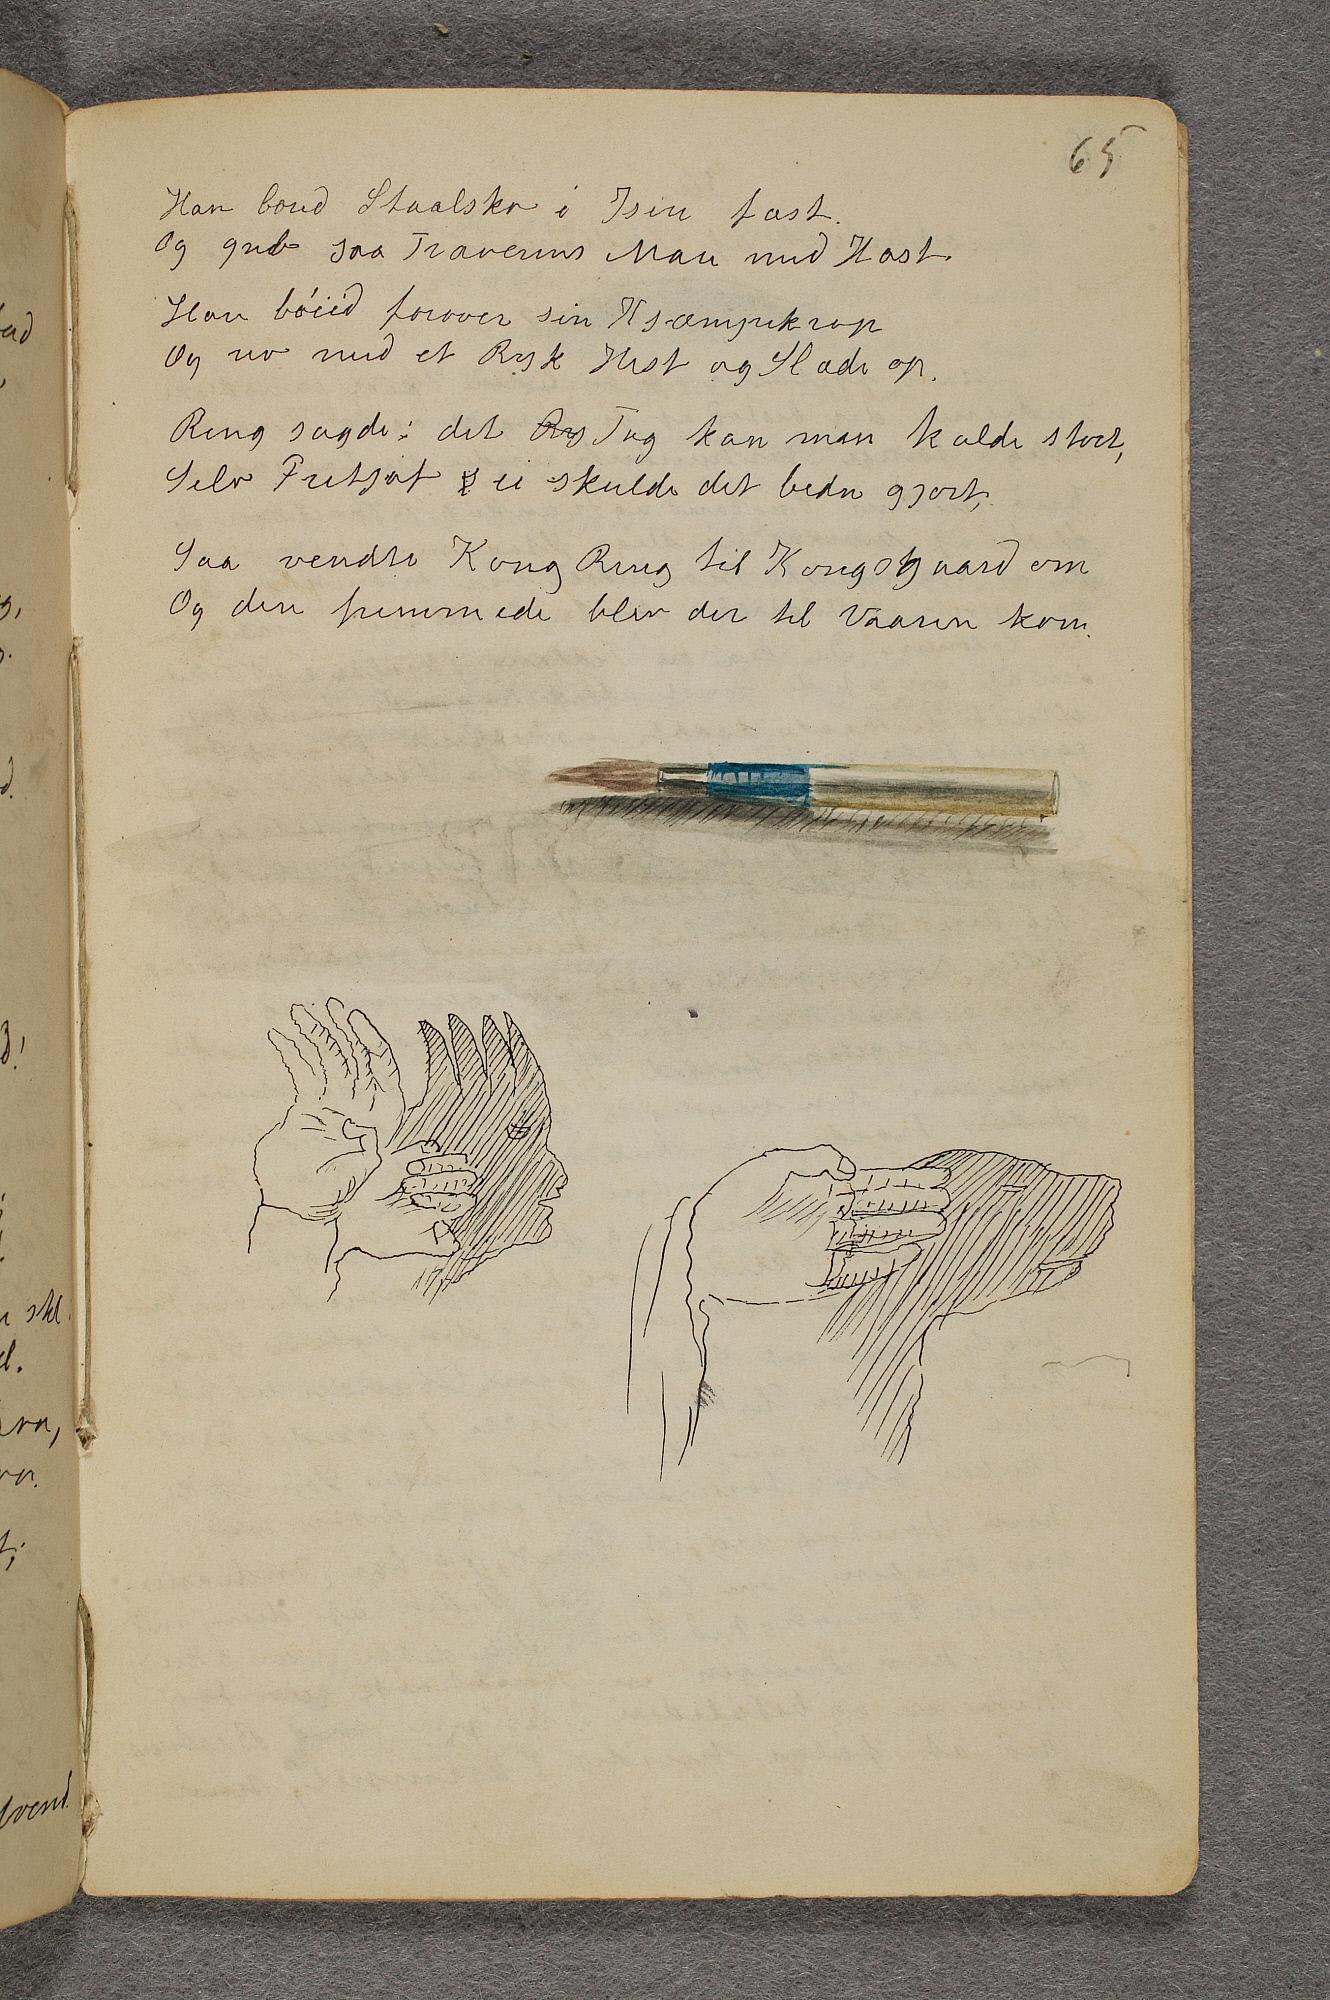 65
Han bord Staalsko i Isen fast.
Og greb saa Traverens Man med Hast.
Han böied forover sin Kjæmpekrop
Og rev med et Ryk Hest og Slæde op.
Ring sagde: det Ry Tag kan man kalde stort,
Selv Fritjof ei skulde det bedre gjort,
Saa vendte Kong Ring til Kongsgaard om
Og den fremmede blev der til Vaaren kom.